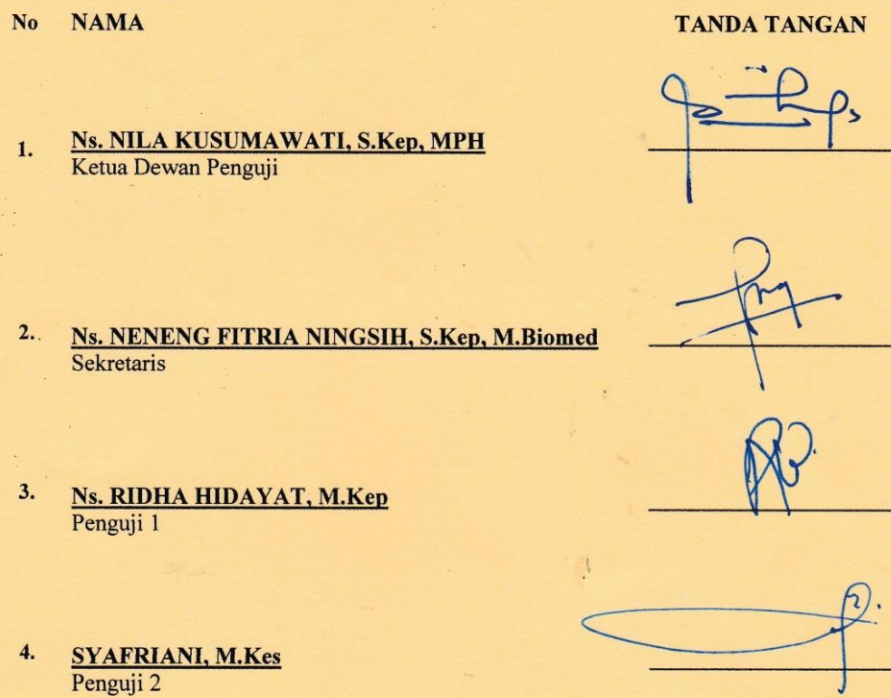 No NAMA TANDA TANGAN
1. Ns. NILA KUSUMAWATI, S.Kep, MPH
Ketua Dewan Penguji
2. Ns. NENENG FITRIA NINGSIH, S.Kep, M.Biomed
Sekretaris
3. Ns. RIDHA HIDAYAT, M.Kep
Penguji 1
4. SYAFRIANI, M.Kes
Penguji 2